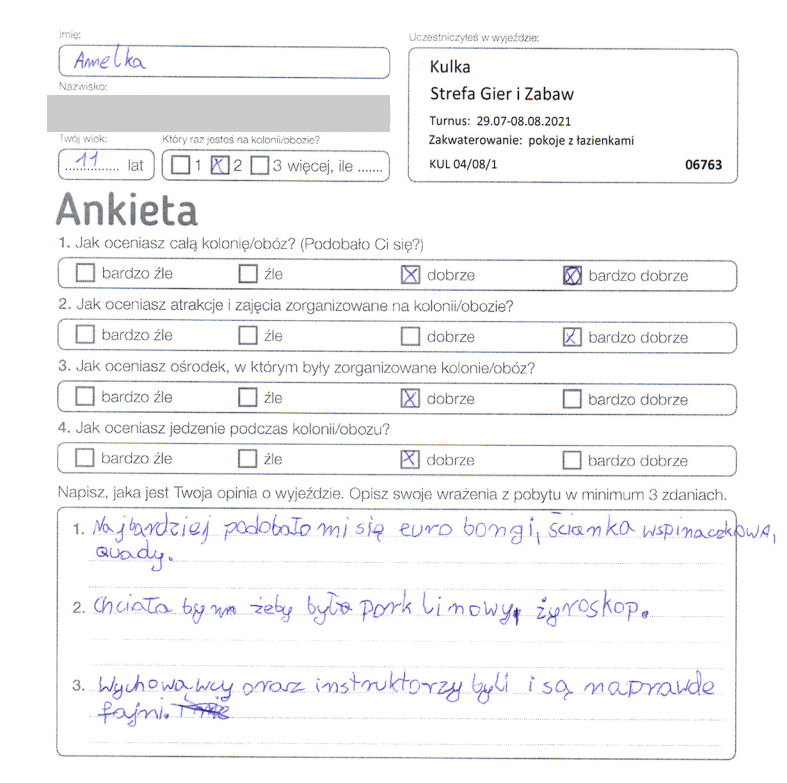 Imię:
Amelka
Nazwisko:
Twój wiek:
11 lat
Który raz jesteś na kolonii/obozie?
1 2 3 więcej, ile .......
Uczestniczyłeś w wyjeździe:
Kulka
Strefa Gier i Zabaw
Turnus: 29.07-08.08.2021
Zakwaterowanie: pokoje z łazienkami
KUL 04/08/1 06763
Ankieta
1. Jak oceniasz całą kolonię/obóz? (Podobało Ci się?)
bardzo źle źle dobrze bardzo dobrze
2. Jak oceniasz atrakcje i zajęcia zorganizowane na kolonii/obozie?
bardzo źle źle dobrze bardzo dobrze
3. Jak oceniasz ośrodek, w którym były zorganizowane kolonie/obóz?
bardzo źle źle dobrze bardzo dobrze
4. Jak oceniasz jedzenie podczas kolonii/obozu?
bardzo źle źle dobrze bardzo dobrze
Napisz, jaka jest Twoja opinia o wyjeździe. Opisz swoje wrażenia z pobytu w minimum 3 zdaniach.
1. Najbardziej podobało mi się euro bongi, ścianka wspinaczkowa,
quady.
2. Chciała bym żeby było park linowy, żyroskop.
3. Wychowawcy oraz instruktorzy byli i są naprawde
fajni.